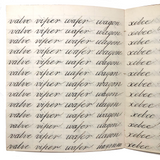 valve viper wafer wagon xebec
valve viper wafer wagon xebec
valve viper wafer wagon xebec
valve viper wafer wagon xebec
valve viper wafer wagon xebec
valve viper wafer wagon xebec
valve viper wafer wagon xebec
valve viper wafer wagon xebec
valve viper wafer wagon xebec
valve viper wafer wagon xebec
valve viper wafer xebec